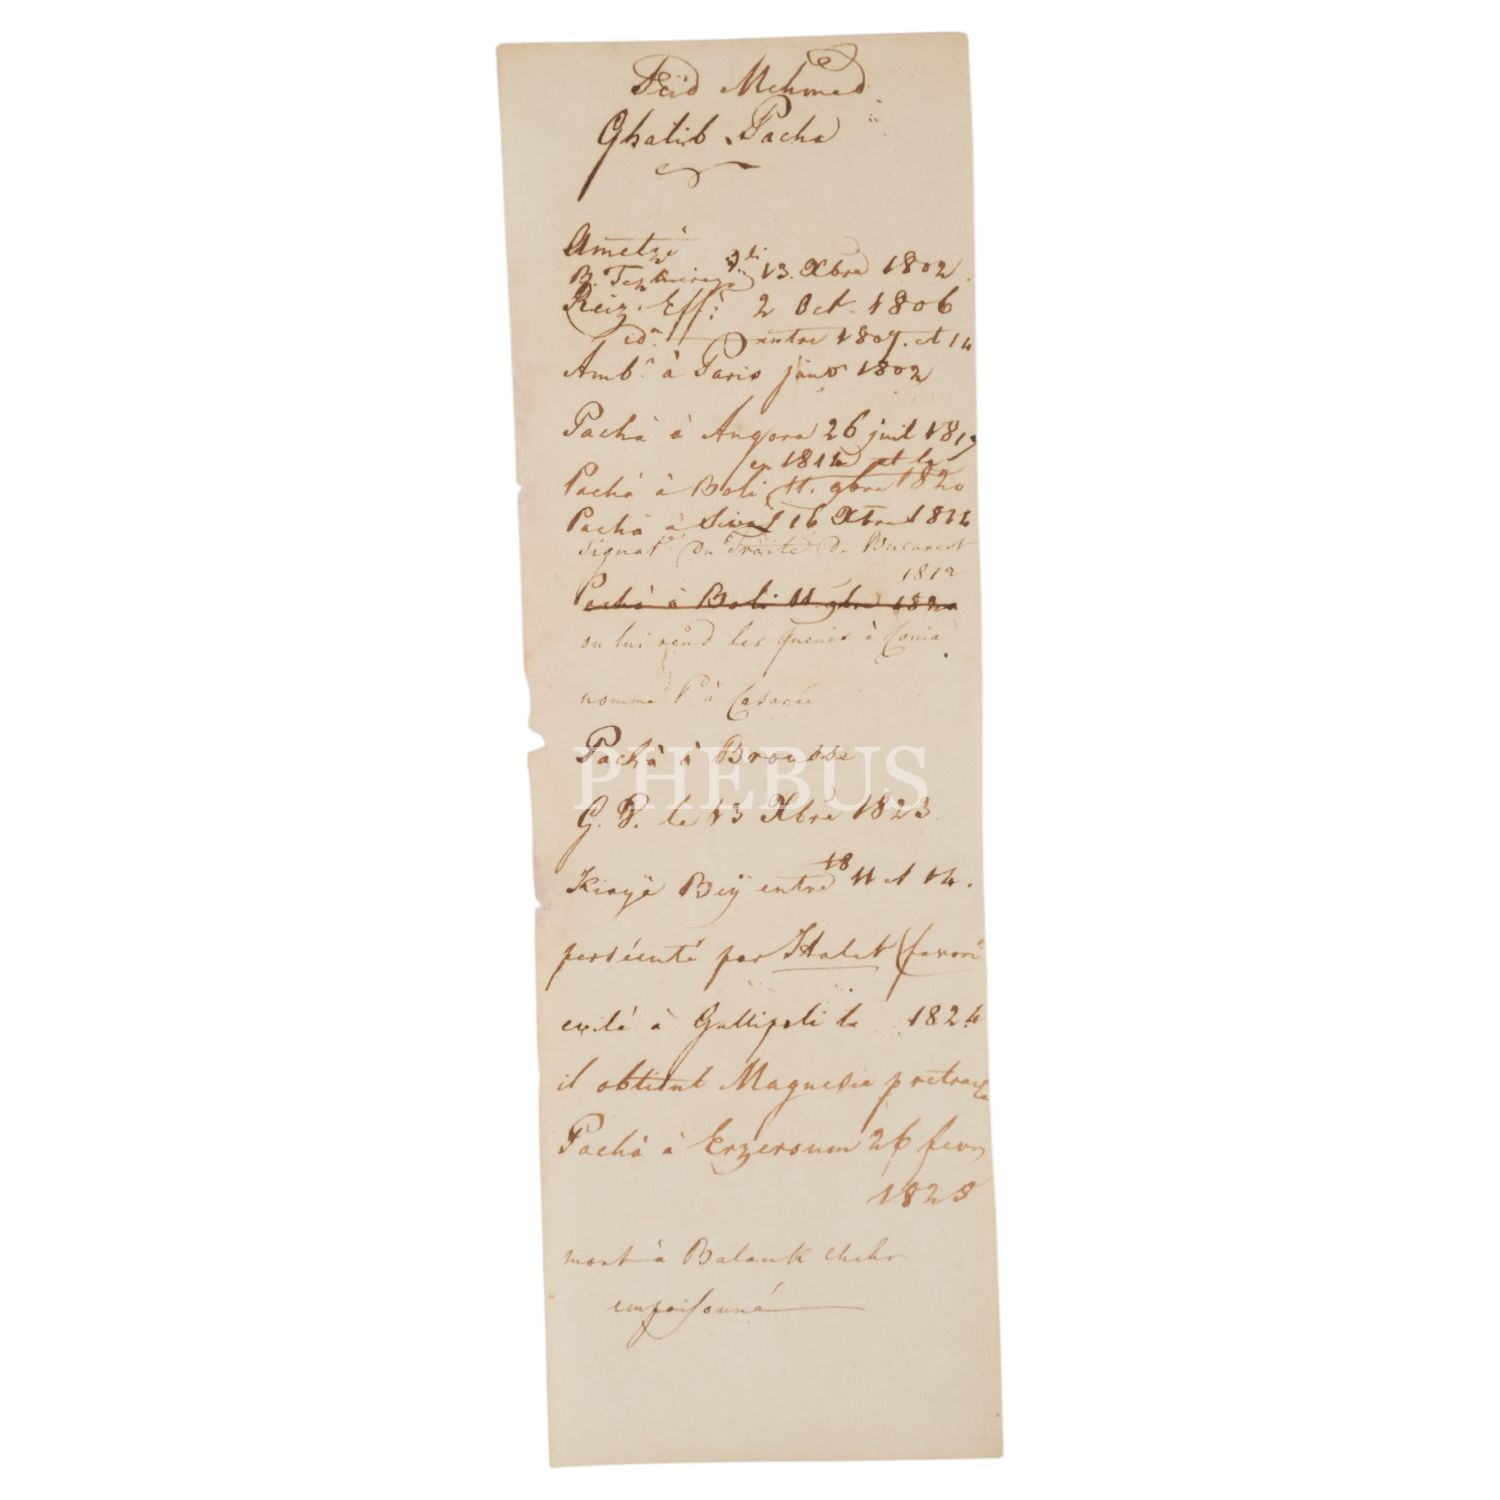 Seïd Mehmed
Ghalib Pacha
Ametzé
B. 13. Xbre 1802.
Reiz. Eff: 2 Oct. 1806
id.m entre 1807. et 14
Amb.r à Paris janv 1802
Pacha à Angora 26 juil 1817
en 1814 et le
Pacha à Boli 11. 9bre 1820
Pacha à Sivas 16 Xbre 1822
signat.e du Traité de Bucarest
1812
Pacha à Boli 11 9bre 1820
on lui rend les queues à Conia
nommé P. à Cesarée
Pacha à Brousse
PHEBUS
G. V. le 13 Xbre 1823.
Kiaya Beÿ entre 18 11 et 14.
persécuté par Halet (favori
exilé à Gallipoli le 1824
il obtient Magnesie p retraite
Pacha à Erzeroum 26 fevr
1828
mort à Balouk chehr
empoisonné